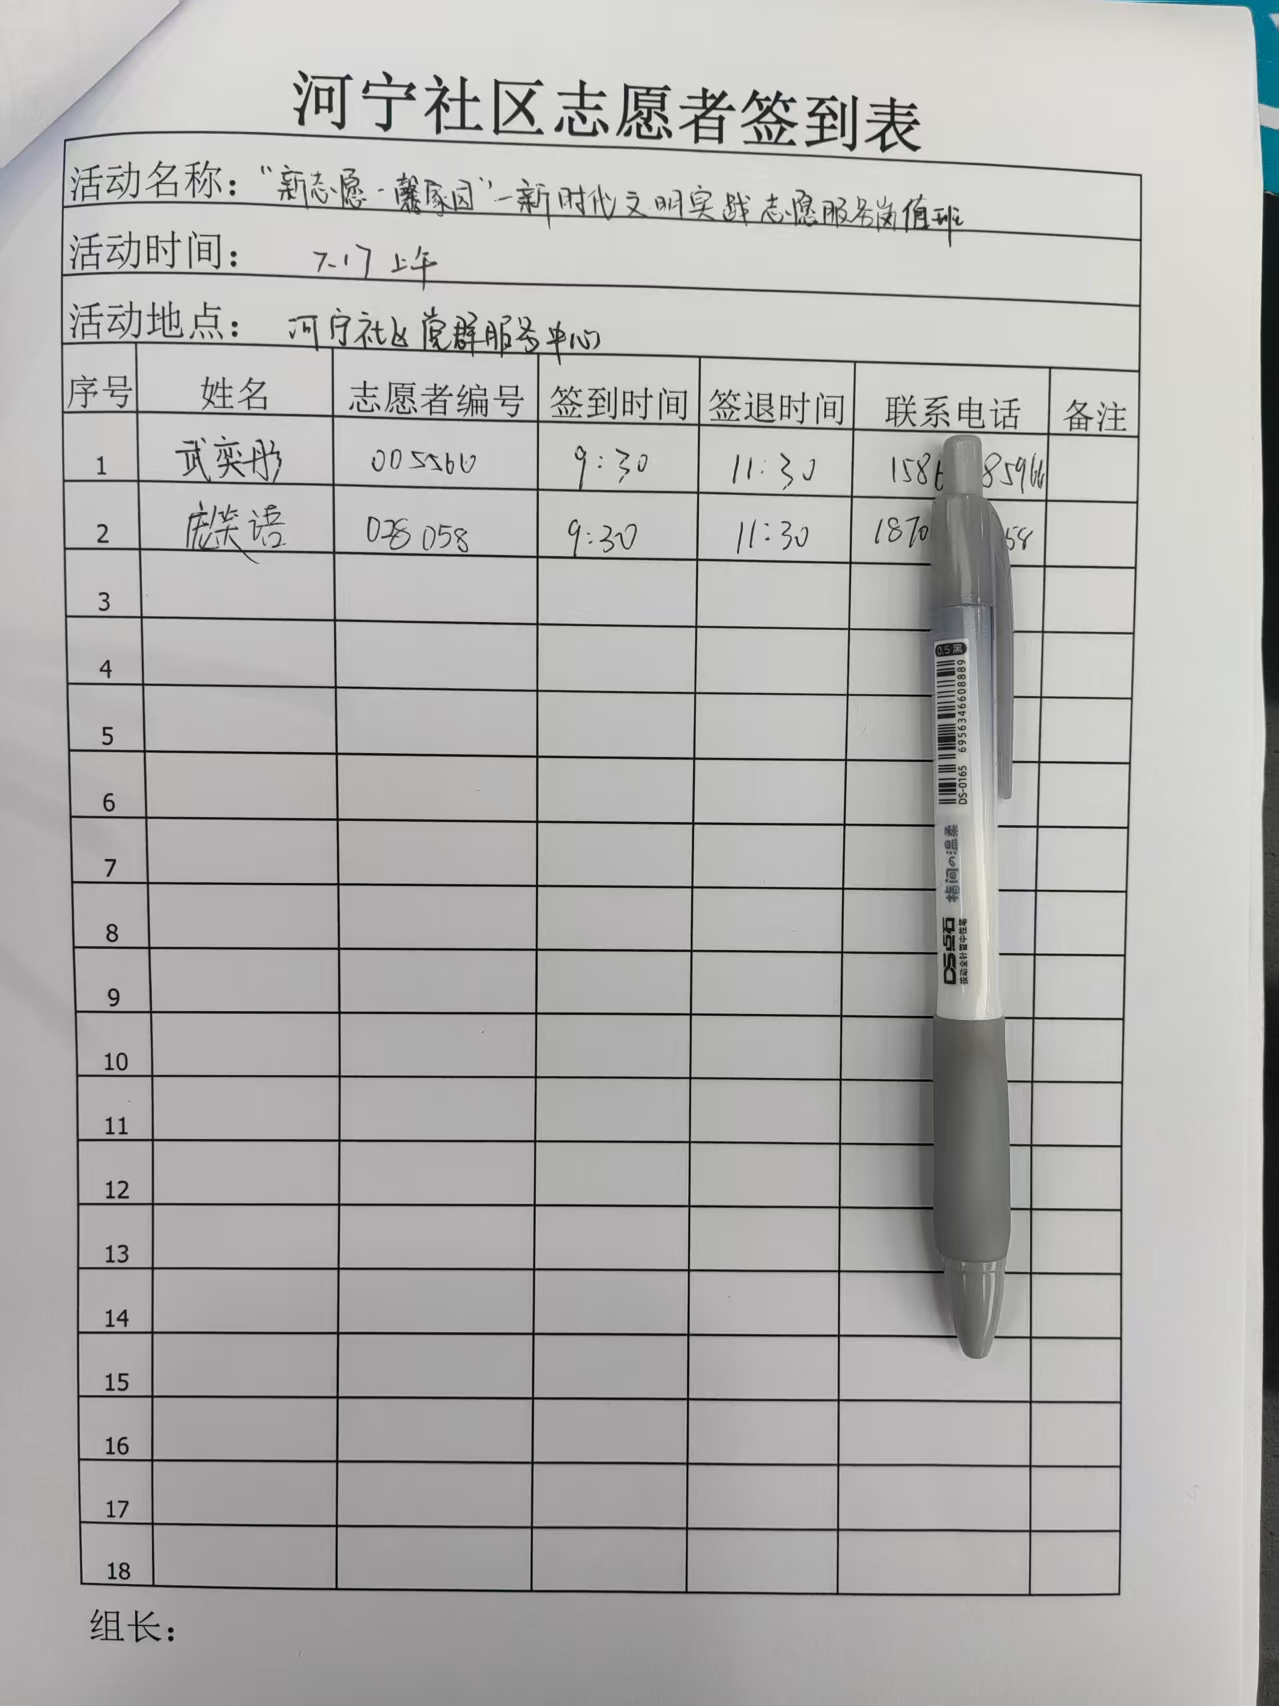 河宁社区志愿者签到表
活动名称：“新志愿·馨家园”—新时代文明实战志愿服务岗值班
活动时间： 7.17 上午
活动地点： 河宁社区党群服务中心
序号 姓名 志愿者编号 签到时间 签退时间 联系电话 备注
1 武奕彤 005560 9:30 11:30 158 85966
2 庞笑语 028058 9:30 11:30 1870 58
3
4
5
6
7
8
9
10
11
12
13
14
15
16
17
18
组长：
0.5 黑
6956346608889
DS-0165
指间の温柔
DS点石
按动全针管中性笔